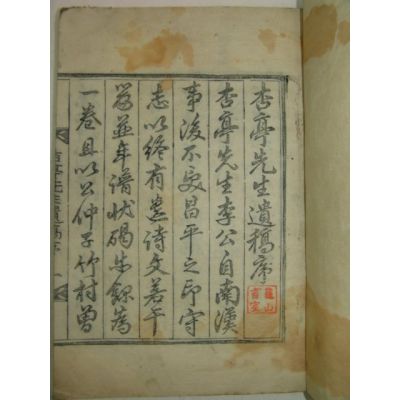 杏亭先生遺稿序
杏亭先生李公自南漢
事後不受昌平之印守
志以終有遺詩文若干
篇並年譜狀碣失錄為
一卷且以公仲子竹村曾
杏亭先生遺稿序
龜山